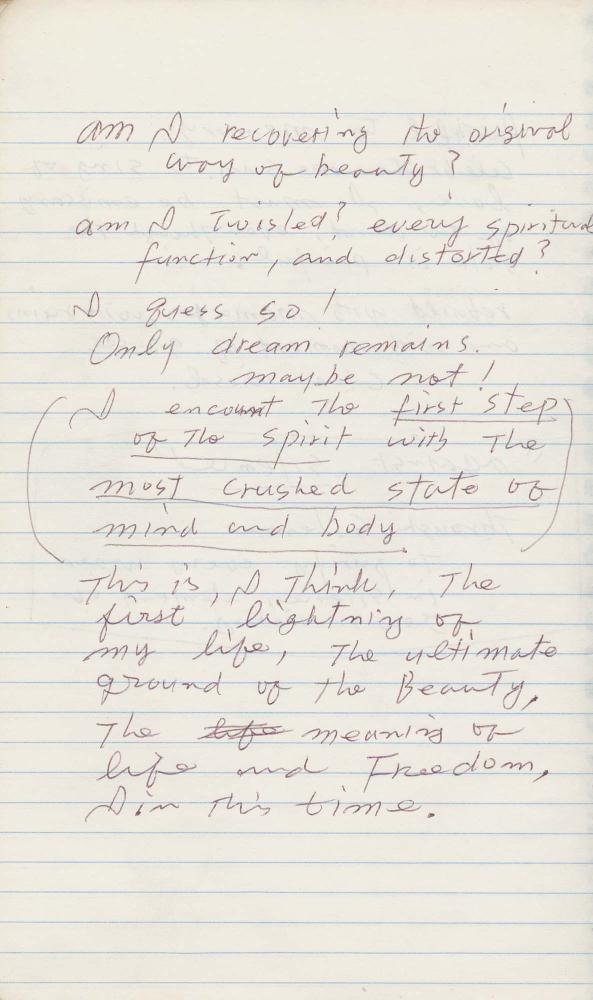 am I recovering the original
way of beauty?
am I Twisled? every spiritual
function, and distorted?
I guess so!
Only dream remains.
maybe not!
(I encount The first step
of The spirit with The
most crushed state of
mind and body.)
This is, I Think, The
first lightning of
my life, The ultimate
ground of the Beauty,
The life meaning of
life and Freedom,
I in This time.